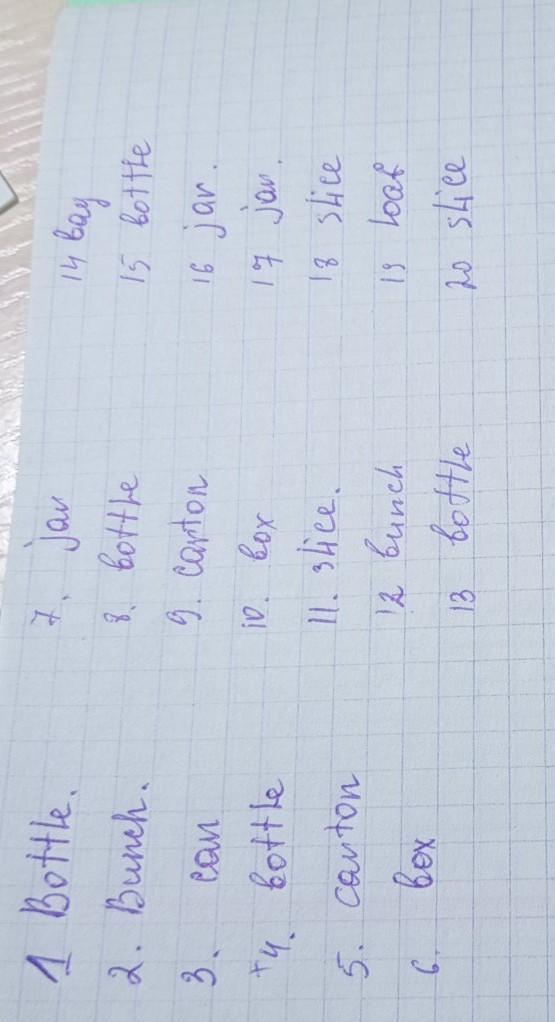 1 Bottle.
2. Bunch.
3. can
+4. bottle
5. carton
6. box
7. jar
8. bottle
9. carton
10. box
11. slice.
12 bunch
13 bottle
14 bag
15 bottle
16 jar.
17 jar.
18 slice
19 loaf
20 slice